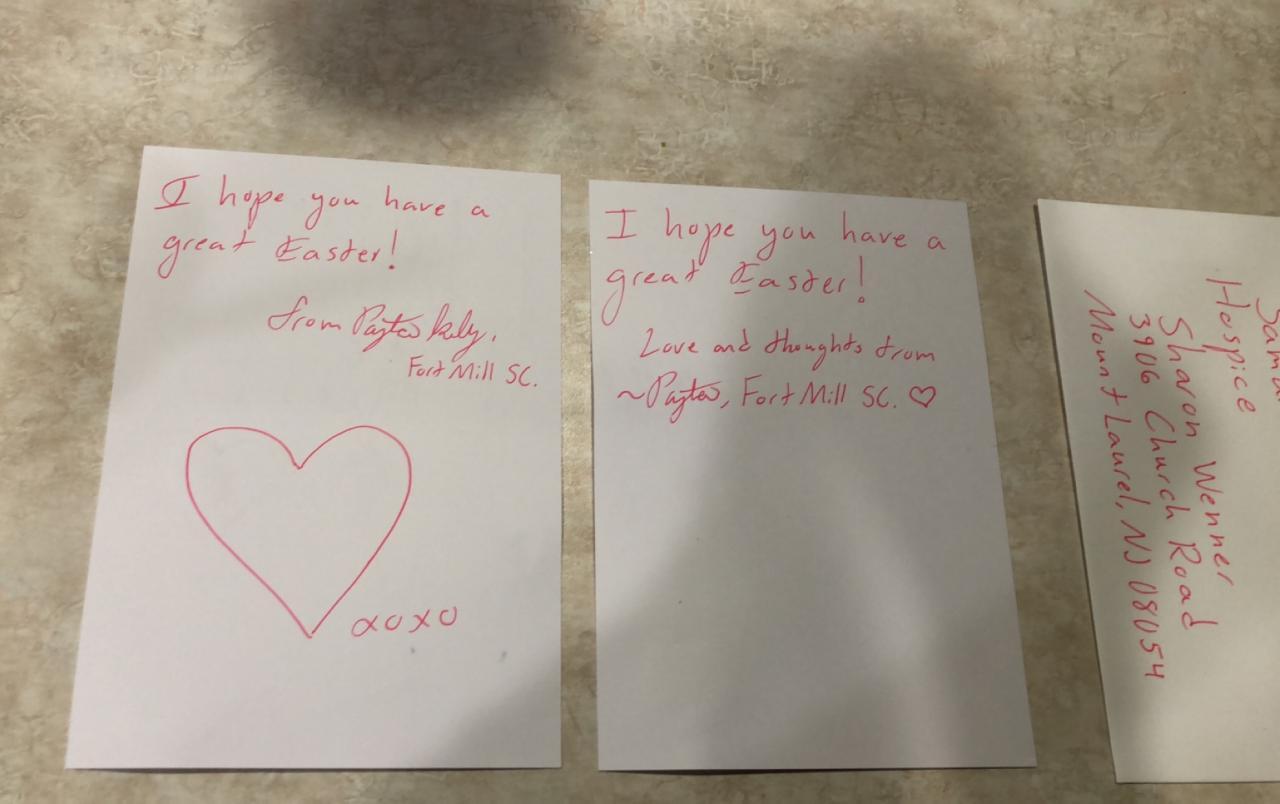 I hope you have a
great Easter!
from Payten
Fort Mill SC.
xoxo
I hope you have a
great Easter!
Love and thoughts from
~Payten, Fort Mill SC. ♡
Hospice
Sharon Wenner
3906 Church Road
Mount Laurel, NJ 08054